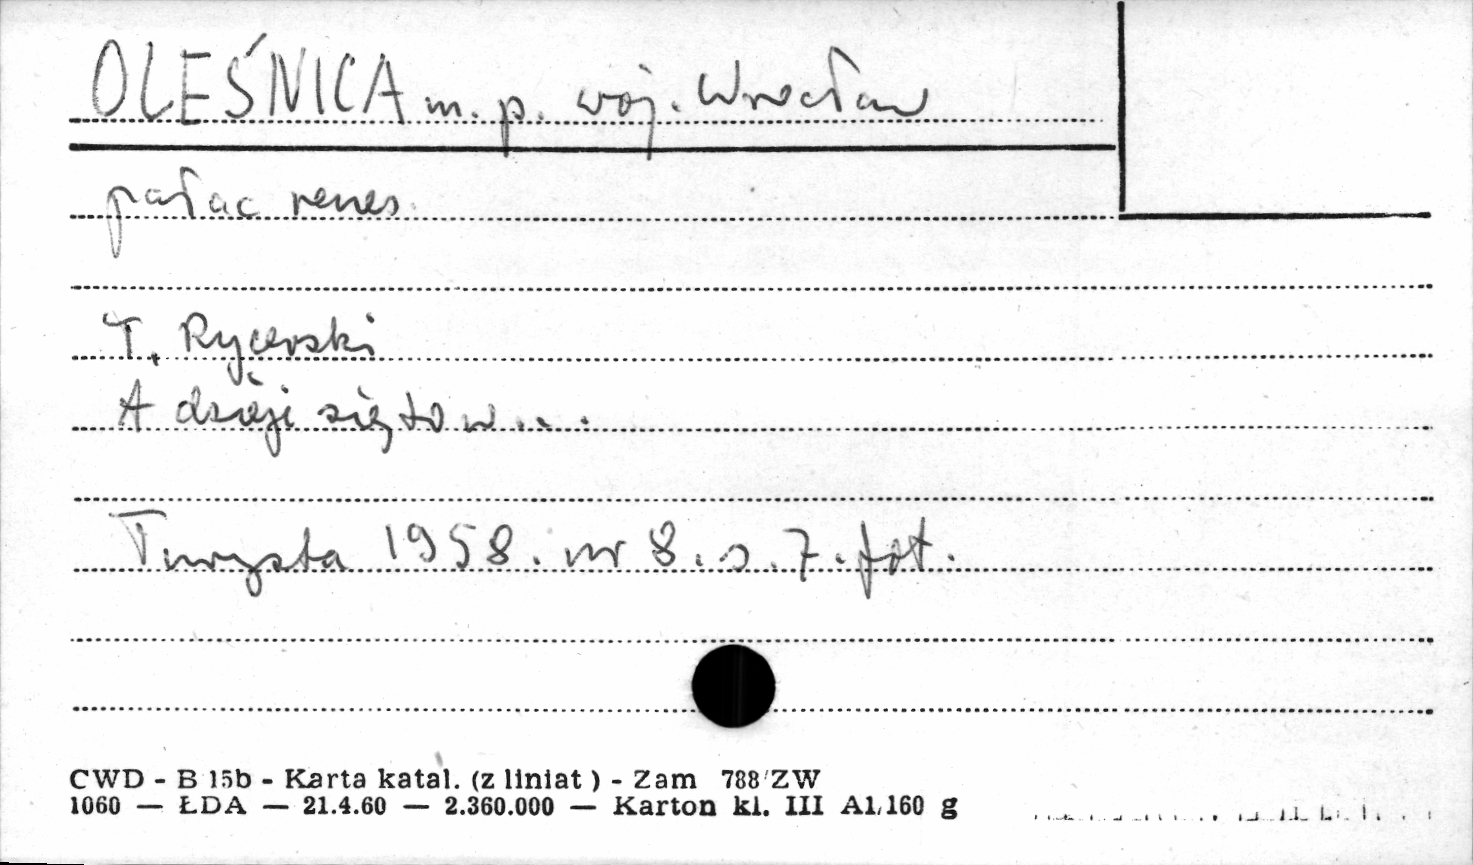 OLEŚNICA m. p. woj. Wrocław
pałac renes.
T. Rycerski
A dzieje się to w...
Turysta 1958. nr 8. s. 7. fot.
CWD - B 15b - Karta katal. (z liniat) - Zam 788/ZW
1060 — ŁDA — 21.4.60 — 2.360.000 — Karton kl. III A1/160 g